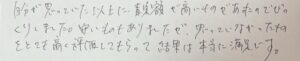 自分が思っていた以上に査定額が高いものがあったのでびっ
くりしました。安いものもありましたが、思っていなかったもの
をとても高く評価してもらって結果は本当に満足です。